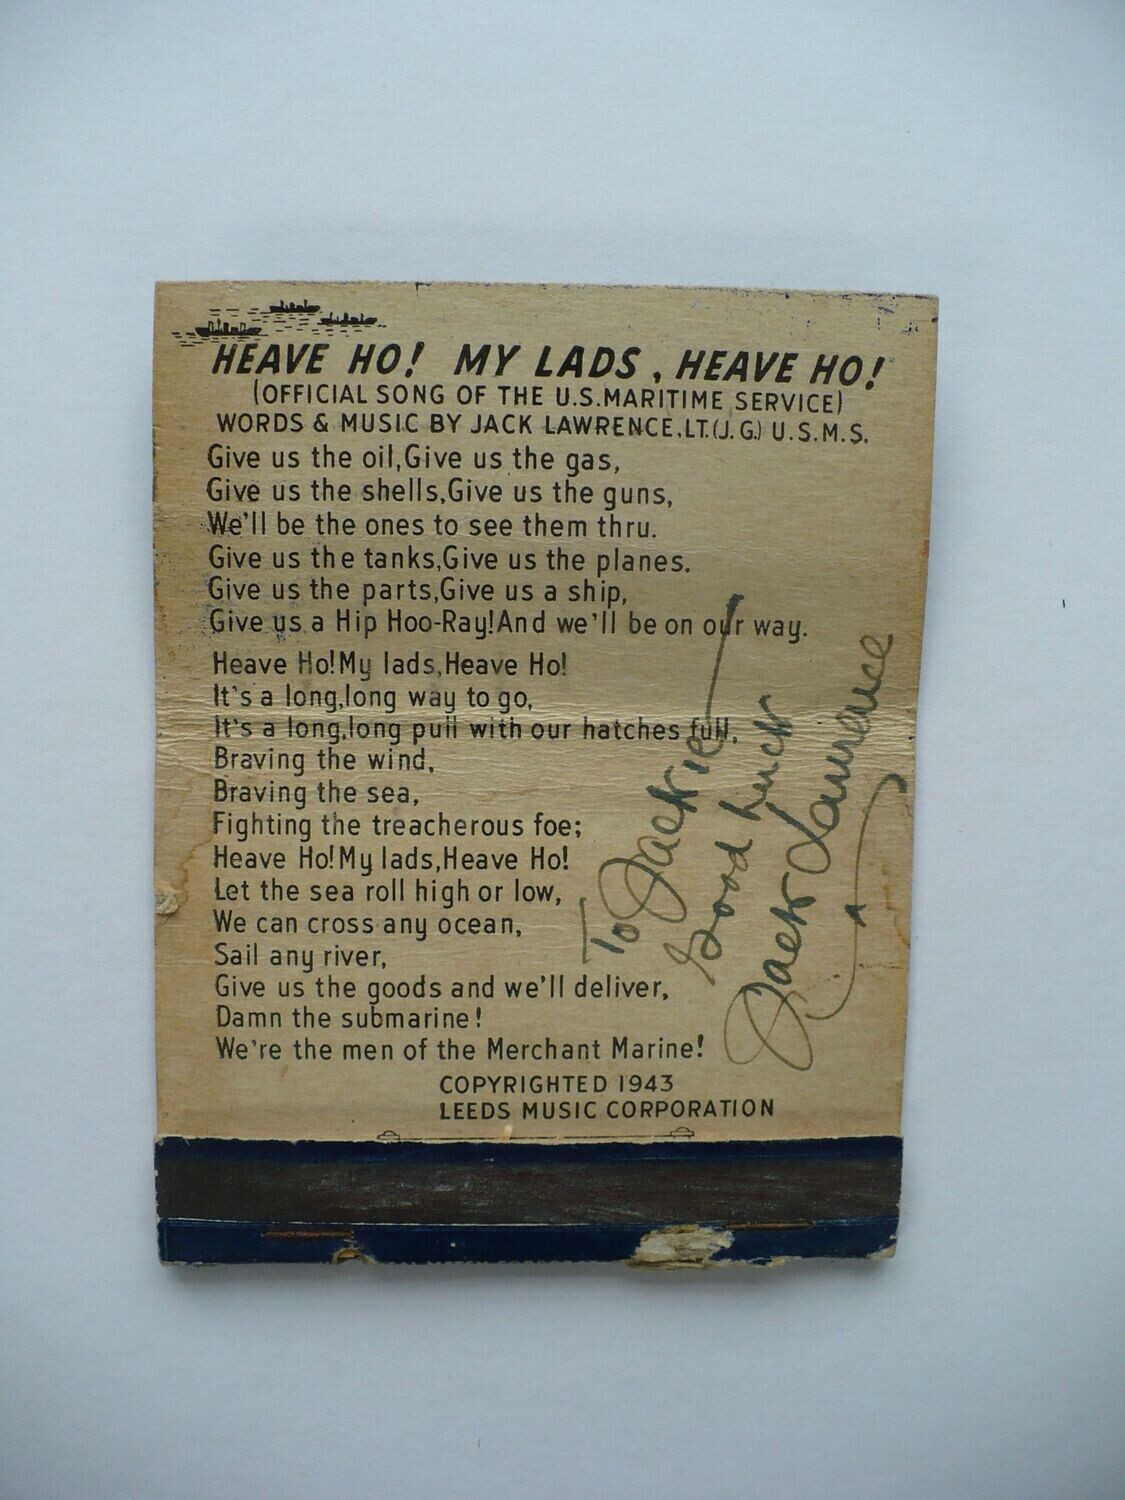 HEAVE HO! MY LADS, HEAVE HO!
(OFFICIAL SONG OF THE U.S. MARITIME SERVICE)
WORDS & MUSIC BY JACK LAWRENCE, LT. (J.G.) U.S.M.S.
Give us the oil, Give us the gas,
Give us the shells, Give us the guns,
We'll be the ones to see them thru.
Give us the tanks, Give us the planes.
Give us the parts, Give us a ship,
Give us a Hip Hoo-Ray! And we'll be on our way.
Heave Ho! My lads, Heave Ho!
It's a long, long way to go,
It's a long, long pull with our hatches full,
Braving the wind,
Braving the sea,
Fighting the treacherous foe;
Heave Ho! My lads, Heave Ho!
Let the sea roll high or low,
We can cross any ocean,
Sail any river,
Give us the goods and we'll deliver,
Damn the submarine!
We're the men of the Merchant Marine!
COPYRIGHTED 1943
LEEDS MUSIC CORPORATION
To Jackie
Good Luck
Jack Lawrence